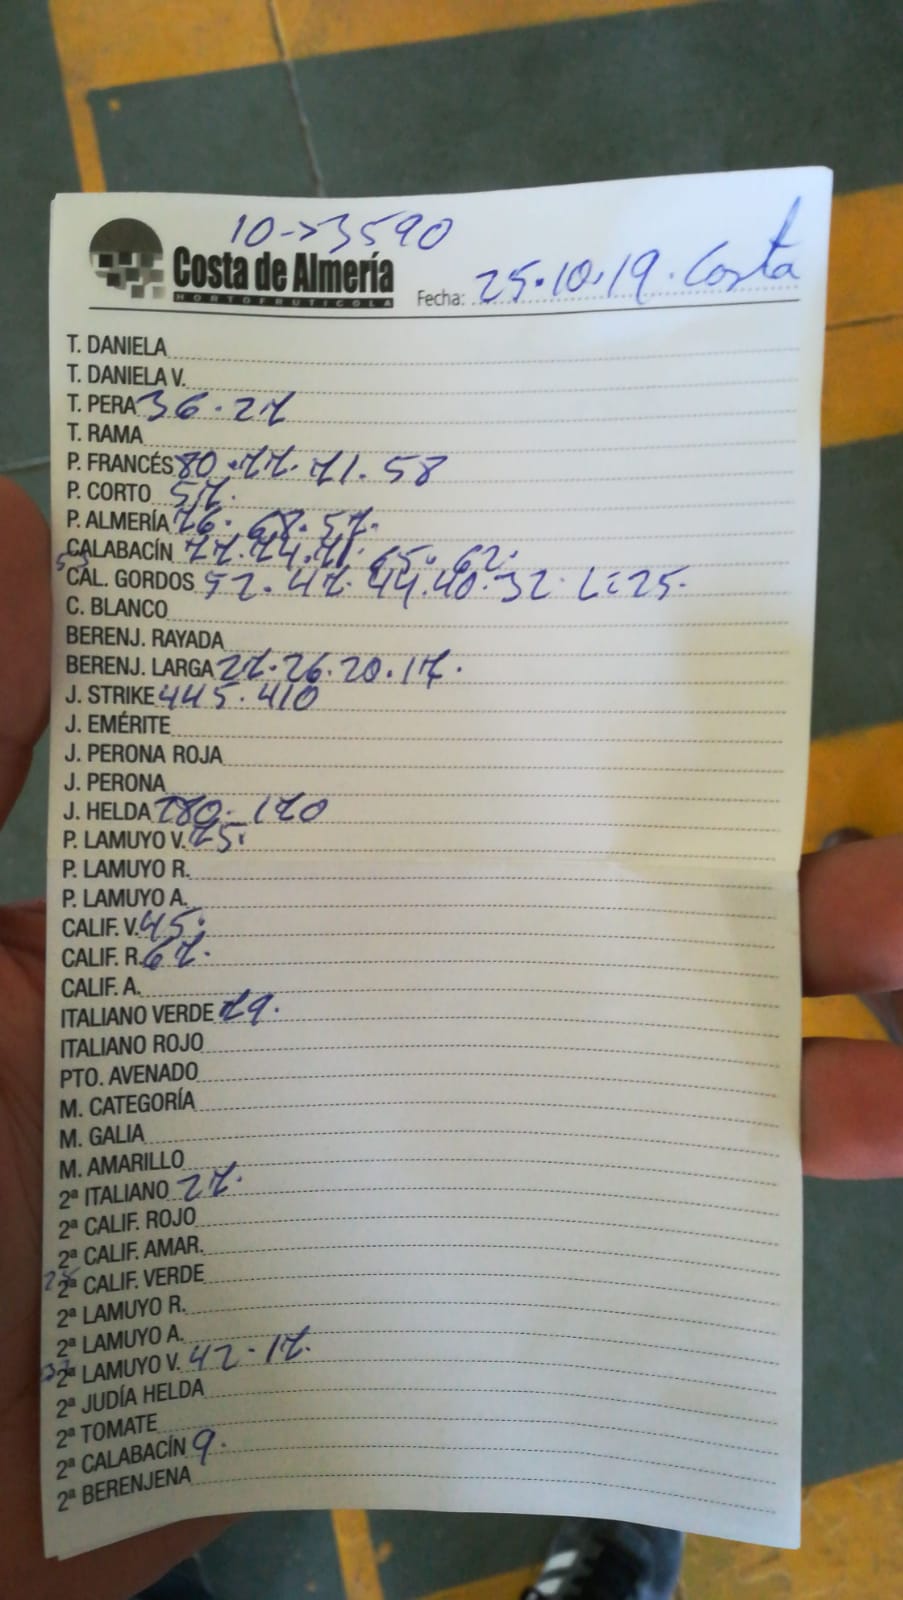 10->3590
Costa de Almería
HORTOFRUTICOLA
Fecha: 25.10.19. Costa
T. DANIELA
T. DANIELA V.
T. PERA 36. 27
T. RAMA
P. FRANCÉS 80. 77. 71. 58
P. CORTO 57.
P. ALMERÍA 76. 68. 57.
CALABACÍN 77. 74. 71. 65. 62.
CAL. GORDOS 52. 47. 44. 40. 32. L=25.
C. BLANCO
BERENJ. RAYADA
BERENJ. LARGA 27. 26. 20. 17.
J. STRIKE 445. 410
J. EMÉRITE
J. PERONA ROJA
J. PERONA
J. HELDA 180. 170
P. LAMUYO V. 75.
P. LAMUYO R.
P. LAMUYO A.
CALIF. V. 45.
CALIF. R. 67.
CALIF. A.
ITALIANO VERDE 79.
ITALIANO ROJO
PTO. AVENADO
M. CATEGORÍA
M. GALIA
M. AMARILLO
2ª ITALIANO 27.
2ª CALIF. ROJO
2ª CALIF. AMAR.
2ª CALIF. VERDE
2ª LAMUYO R.
2ª LAMUYO A.
2ª LAMUYO V. 42. 17.
2ª JUDÍA HELDA
2ª TOMATE
2ª CALABACÍN 9.
2ª BERENJENA